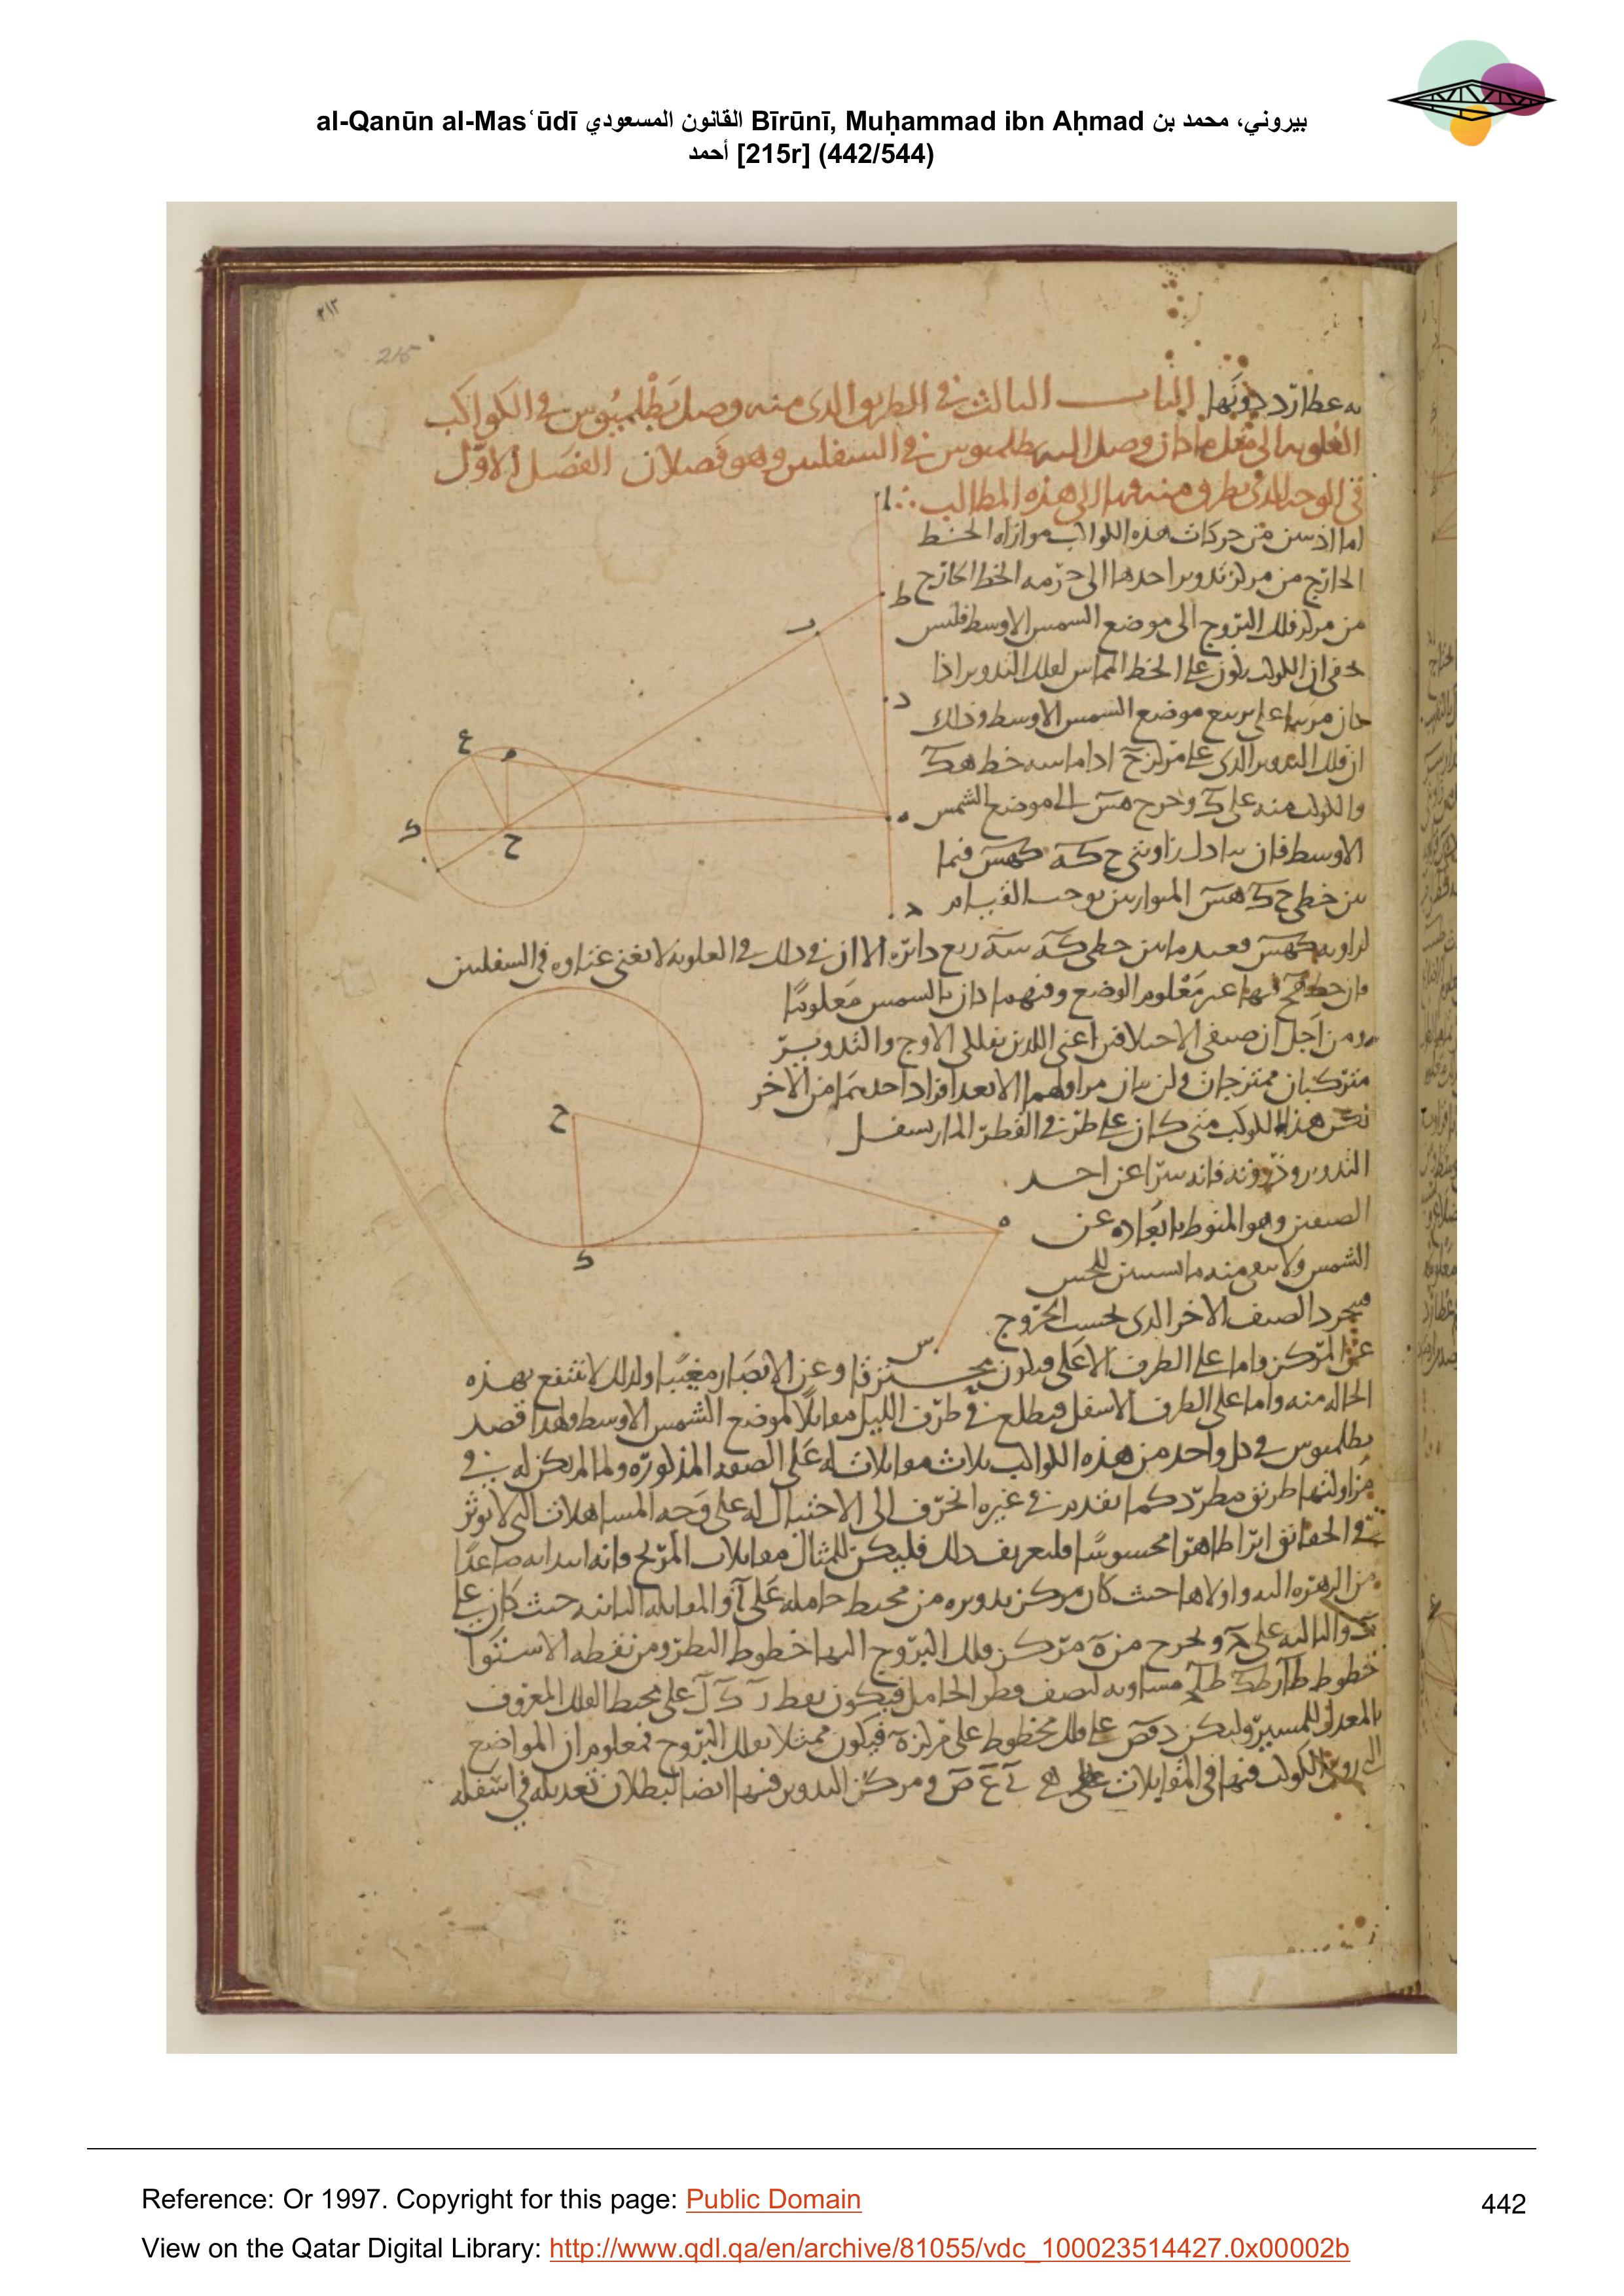 al-Qanūn al-Masʿūdī القانون المسعودي Bīrūnī, Muḥammad ibn Aḥmad بيروني، محمد بن
أحمد [215r] (442/544)
٢١٣
215
به عطارد دونها الباب الثالث في الطريق الذي منه وصل بطلميوس في الكواكب
العلوية الى مثل ما كان وصل اليه بطلميوس في السفليين وهو فصلان الفصل الاول
في الوجه الذي تطرق منه الى هذه المطالب
اما اذ من حركات هذه الكواكب موازاة الخط
الخارج من مركز تدوير احدها الى جرمه الخط الخارج
من مركز فلك البروج الى موضع الشمس الاوسط فليس
يخفى ان الكوكب يكون على الخط المماس لفلك التدوير اذا
كان على تربيع موضع الشمس الاوسط وذلك
ان فلك التدوير الذي على مركز ح اذا ماسه خط هك
والكوكب منه على ك وخرج هس الى موضع الشمس
الاوسط فان تبادل زاويتي حكه كهس فيما
بين خطي حك هس المتوازيين يوجب القيام
لزاوية كهس فبعد ما بين خطي كه سه ربع دائرة الا ان ذلك في العلوية لا يغني غناوه في السفليين
فان خط هح فيها غير معلوم الوضع وفيهما كان بالشمس معلوما
ومن اجل ان صنفي الاختلافين اعني اللذين بفلكي الاوج والتدوير
متركبان ممتزجان ولن الا بعد افراد احدهما من الاخر
هذا الكوكب متى كان على طرفي القطر المار بسفل
التدوير وذروته فانه يتبرا عن احد
الصنفين وهو المنوط بابعاده عن
الشمس ولا يبقى منه ما يستبين للحس
فيتجرد الصنف الاخر الذي بحسب الخروج
عن المركز واما على الطرف الاعلى فيكون محترقا وعن الابصار مغيبا ولذلك لا ننتفع بهذه
الحاله منه واما على الطرف الاسفل فيطلع في طرف الليل مقابلا لموضع الشمس الاوسط ولهذا قصد
بطلميوس في كل واحد من هذه الكواكب ثلاث مقابلات له على الصفه المذكوره ولما لم يكن له في
مزاولتها طريق مطرد كما تقدم في غيره انحرف الى الاحتيال له على وجه المساهلات التي لا توثر
في الحقائق اثرا ظاهرا محسوسا ولتعريف ذلك فليكن للمثال مقابلات المريخ فانه ابتدا به صاعدا
من الزهره اليه واولاها حيث كان مركز تدويره من محيط حامله على آ والمقابله الثانيه حيث كان على
ب والثالثه على ج ونخرج من ه مركز فلك البروج اليها خطوط النظر ومن نقطه الاستوا
خطوط مساويه لنصف قطر الحامل فيكون نقط ر ك ل على محيط الفلك المعروف
بالمعدل للمسير وليكن على فلك مخطوط على مركز ه فيكون ممثلا بفلك البروج فمعلوم ان المواضع
التي الكوكب فيها في المقابلات على ومركز التدوير فيها ايضا لبطلان تعديله في اسفله
ا
ط
ر
د
ه
ع
م
ك
ح
ج
ح
ه
ك
س
Reference: Or 1997. Copyright for this page: Public Domain
442
View on the Qatar Digital Library: http://www.qdl.qa/en/archive/81055/vdc_100023514427.0x00002b